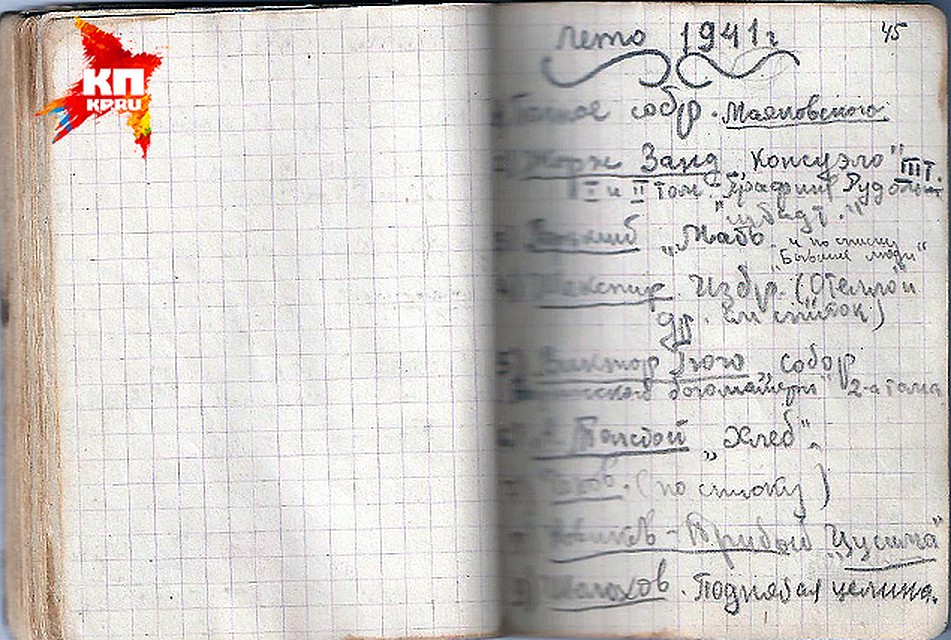 КП
KP.RU
лето 1941г
45
Полное собр. Маяковского.
Жорж Занд „Консуэло" III т.
I и II том Графиня Рудольш
„избидт."
3) Горький „Мать" и по списку
„Бывшие люди"
4) Шекспир Избр. (Отелло и
др. см список)
5) Виктор Гюго „собор
Парижского богоматери" 2-а тома
6) А Толстой „Хлеб".
7) Чехов. (по списку)
Новиков-Прибой „Цусима"
9) Шолохов. Поднятая целина.